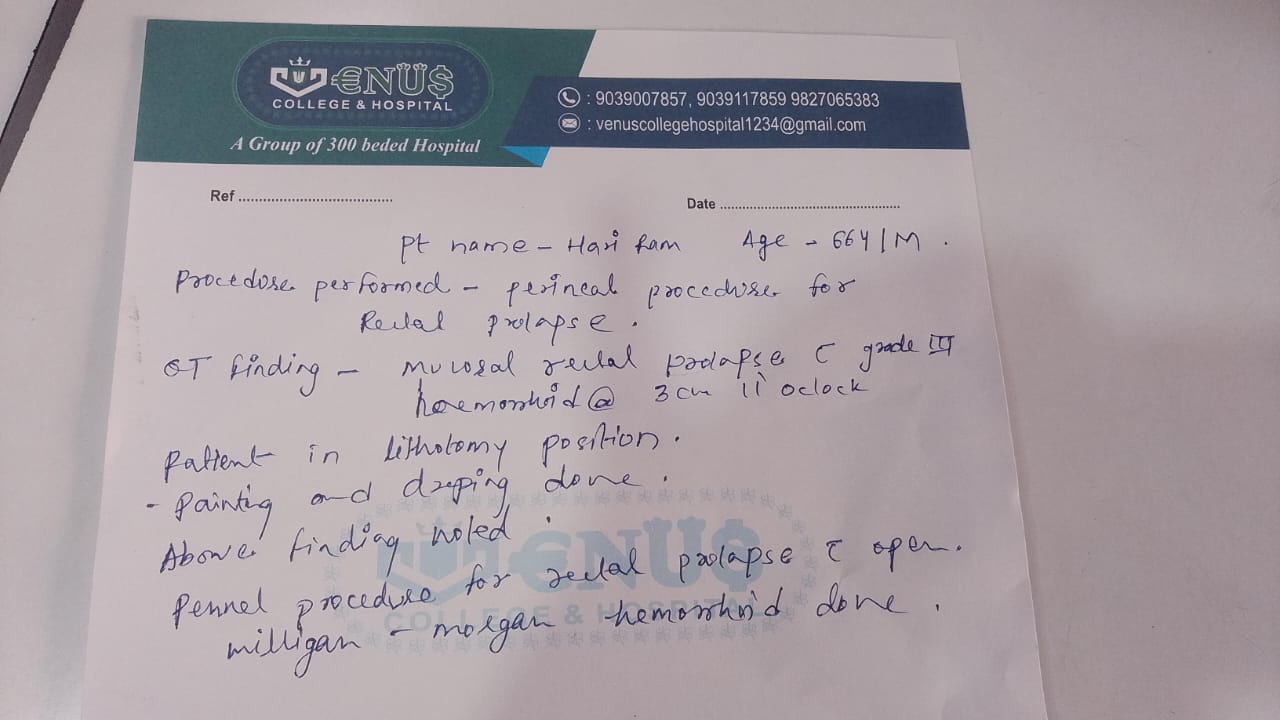 VENUS
COLLEGE & HOSPITAL
A Group of 300 beded Hospital
: 9039007857, 9039117859 9827065383
: venuscollegehospital1234@gmail.com
Ref ......................................
Date ..............................................
Pt name - Hari Ram Age - 66Y/M.
Procedure performed - perineal procedure for
Rectal prolapse.
OT finding - Mucosal rectal prolapse c̄ grade III
haemorrhoid @ 3 cm 11 oclock
Patient in lithotomy position.
- Painting and draping done.
Above finding noted.
procedure for rectal prolapse c̄ open.
milligan - morgan hemorrhoid done.
VENUS
COLLEGE & HOSPITAL